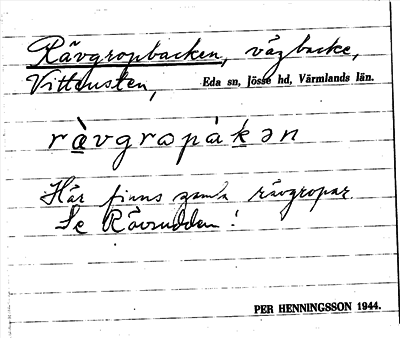 Rävgropbacken, vägbacke,
Vittensten, Eda sn, Jösse hd, Värmlands län.
rävgropàkən
Här finns gamla rävgropar.
Se Rävsudden!
PER HENNINGSSON 1944.